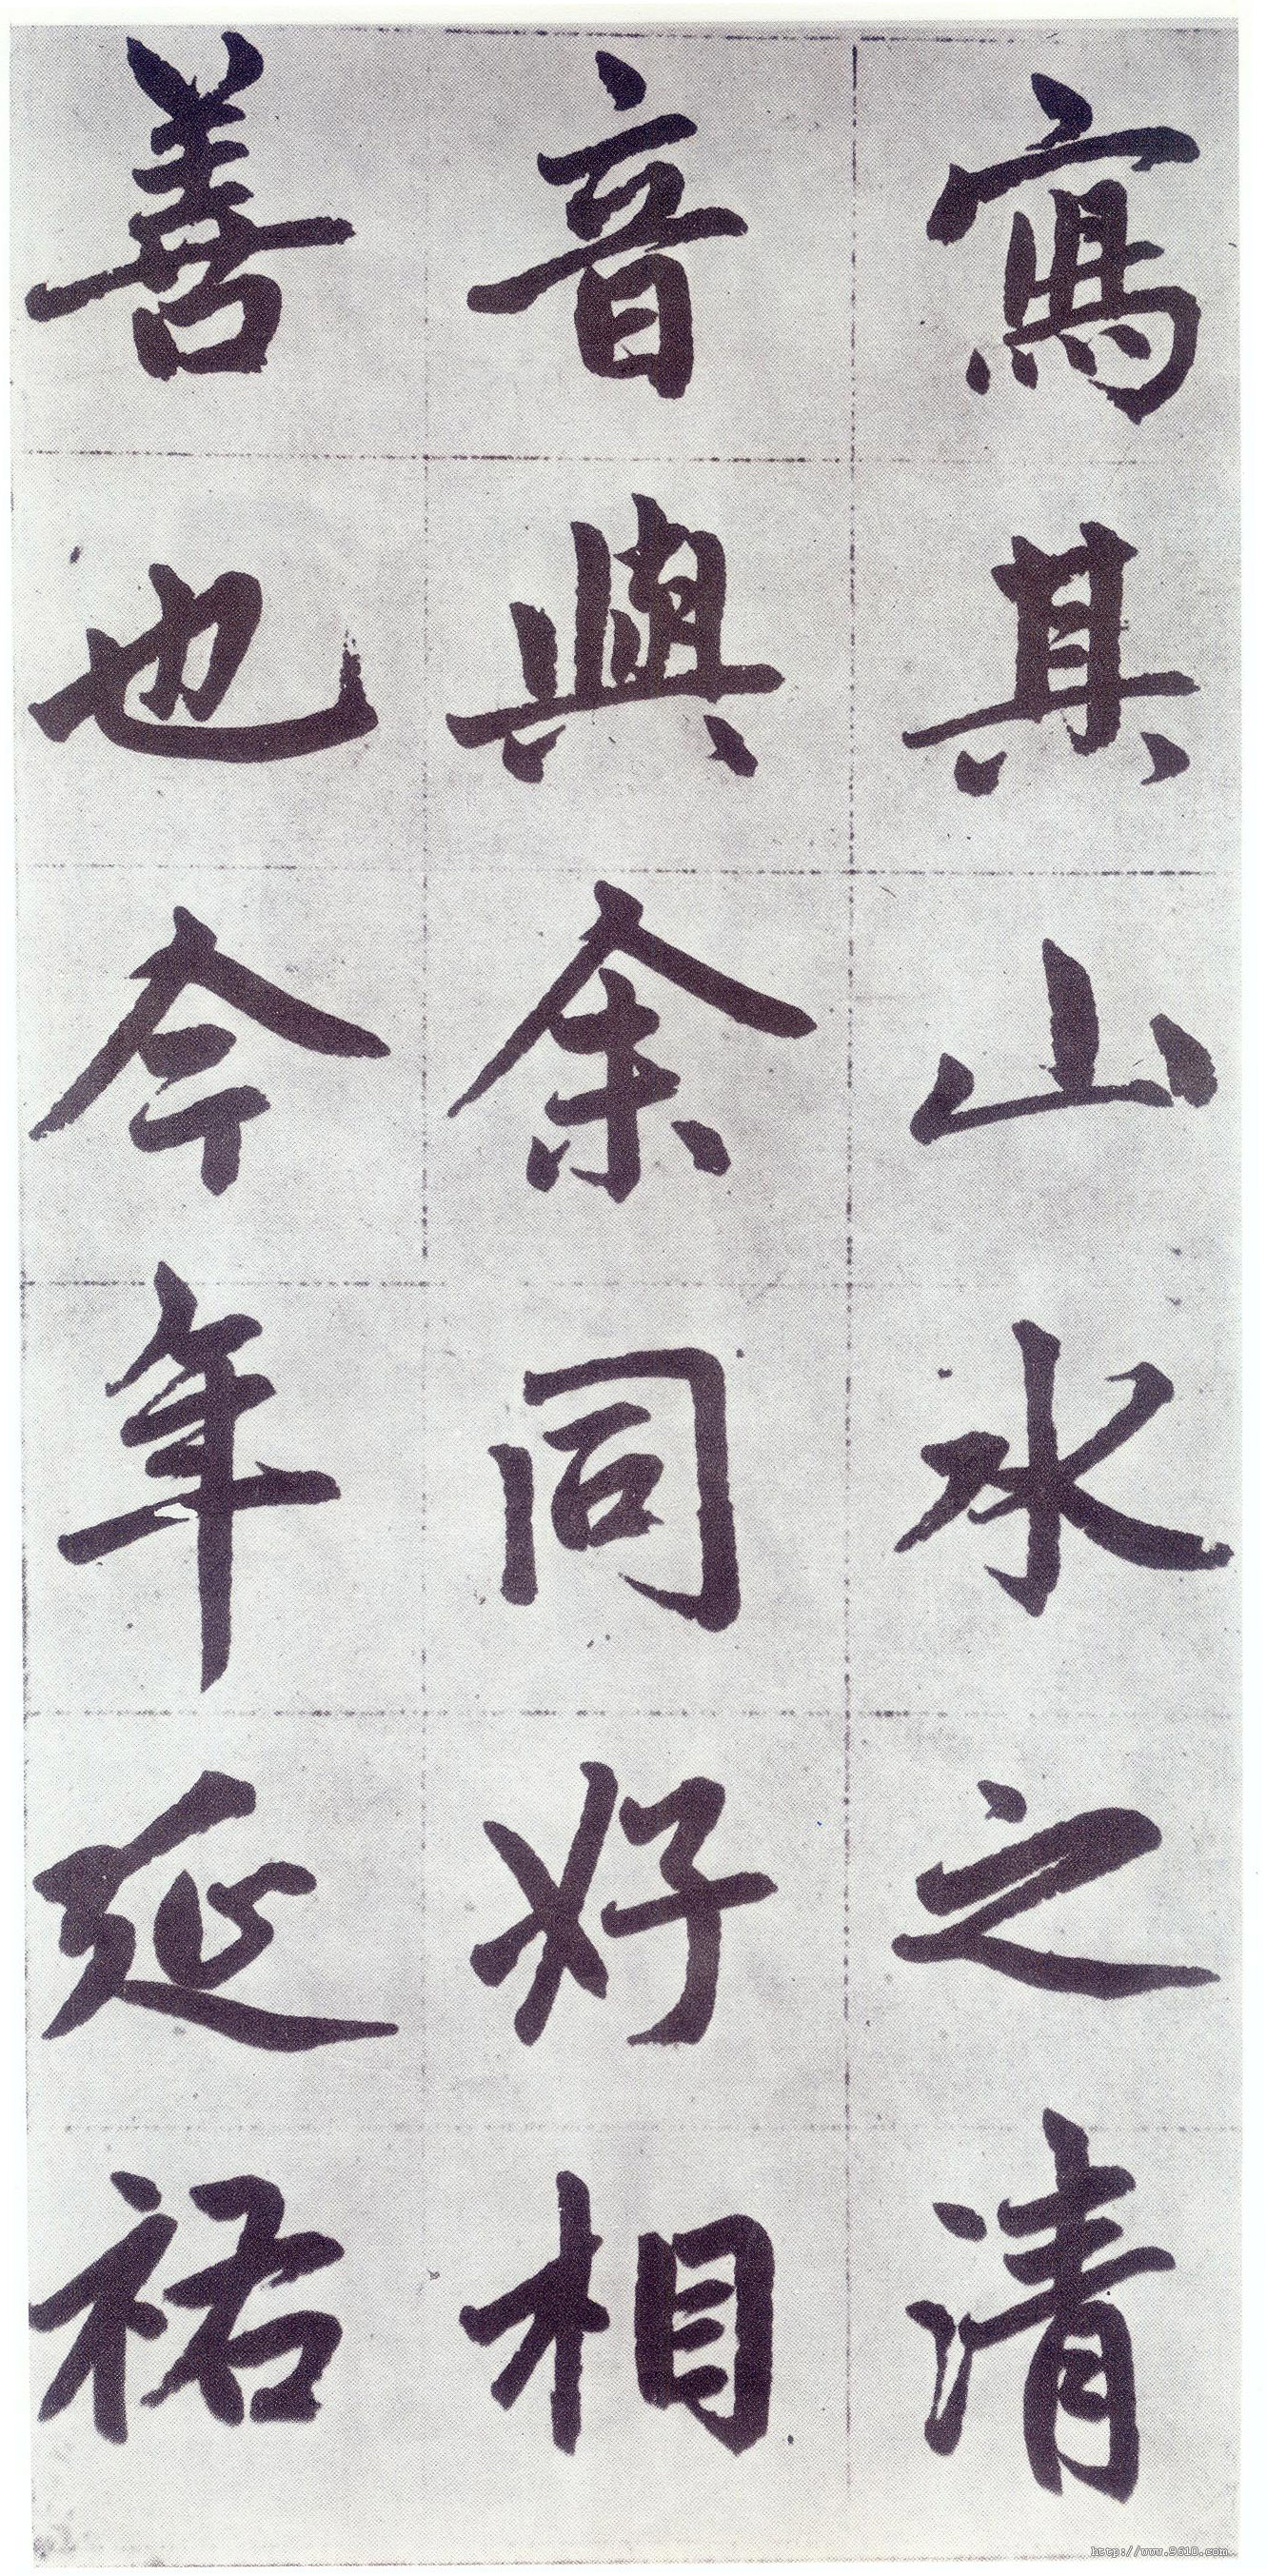 寫其山水之清
音與余同好相
善也今年延祐
http://www.9610.com